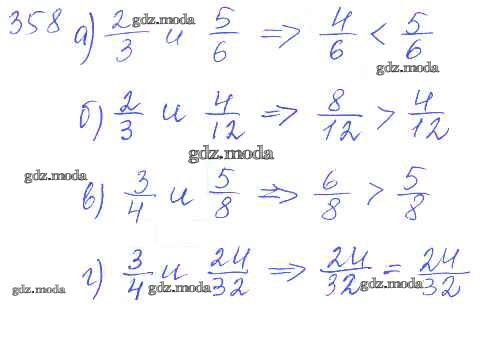 358 а) 2/3 и 5/6 => 4/6 < 5/6
gdz.moda
gdz.moda
б) 2/3 и 4/12 => 8/12 > 4/12
gdz.moda
gdz.moda
в) 3/4 и 5/8 => 6/8 > 5/8
г) 3/4 и 24/32 => 24/32 = 24/32
gdz.moda gdz.moda gdz.moda